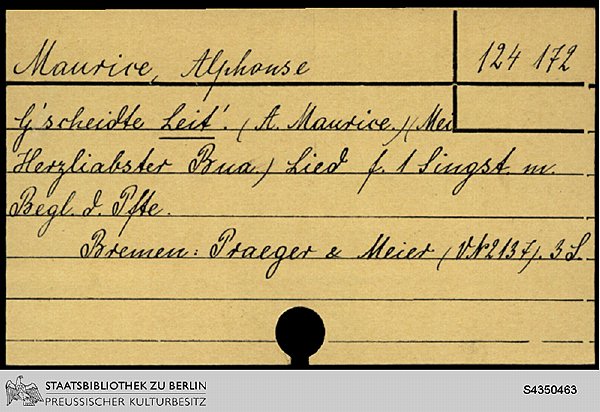 Maurice, Alphonse
124 172
G'scheidte Leit'. (A. Maurice.) (Mei
Herzliabster Bua.) Lied f. 1 Singst. m.
Begl. d. Pfte.
Bremen: Praeger & Meier (VN 2137). 3 S.
STAATSBIBLIOTHEK ZU BERLIN
PREUSSISCHER KULTURBESITZ
S4350463